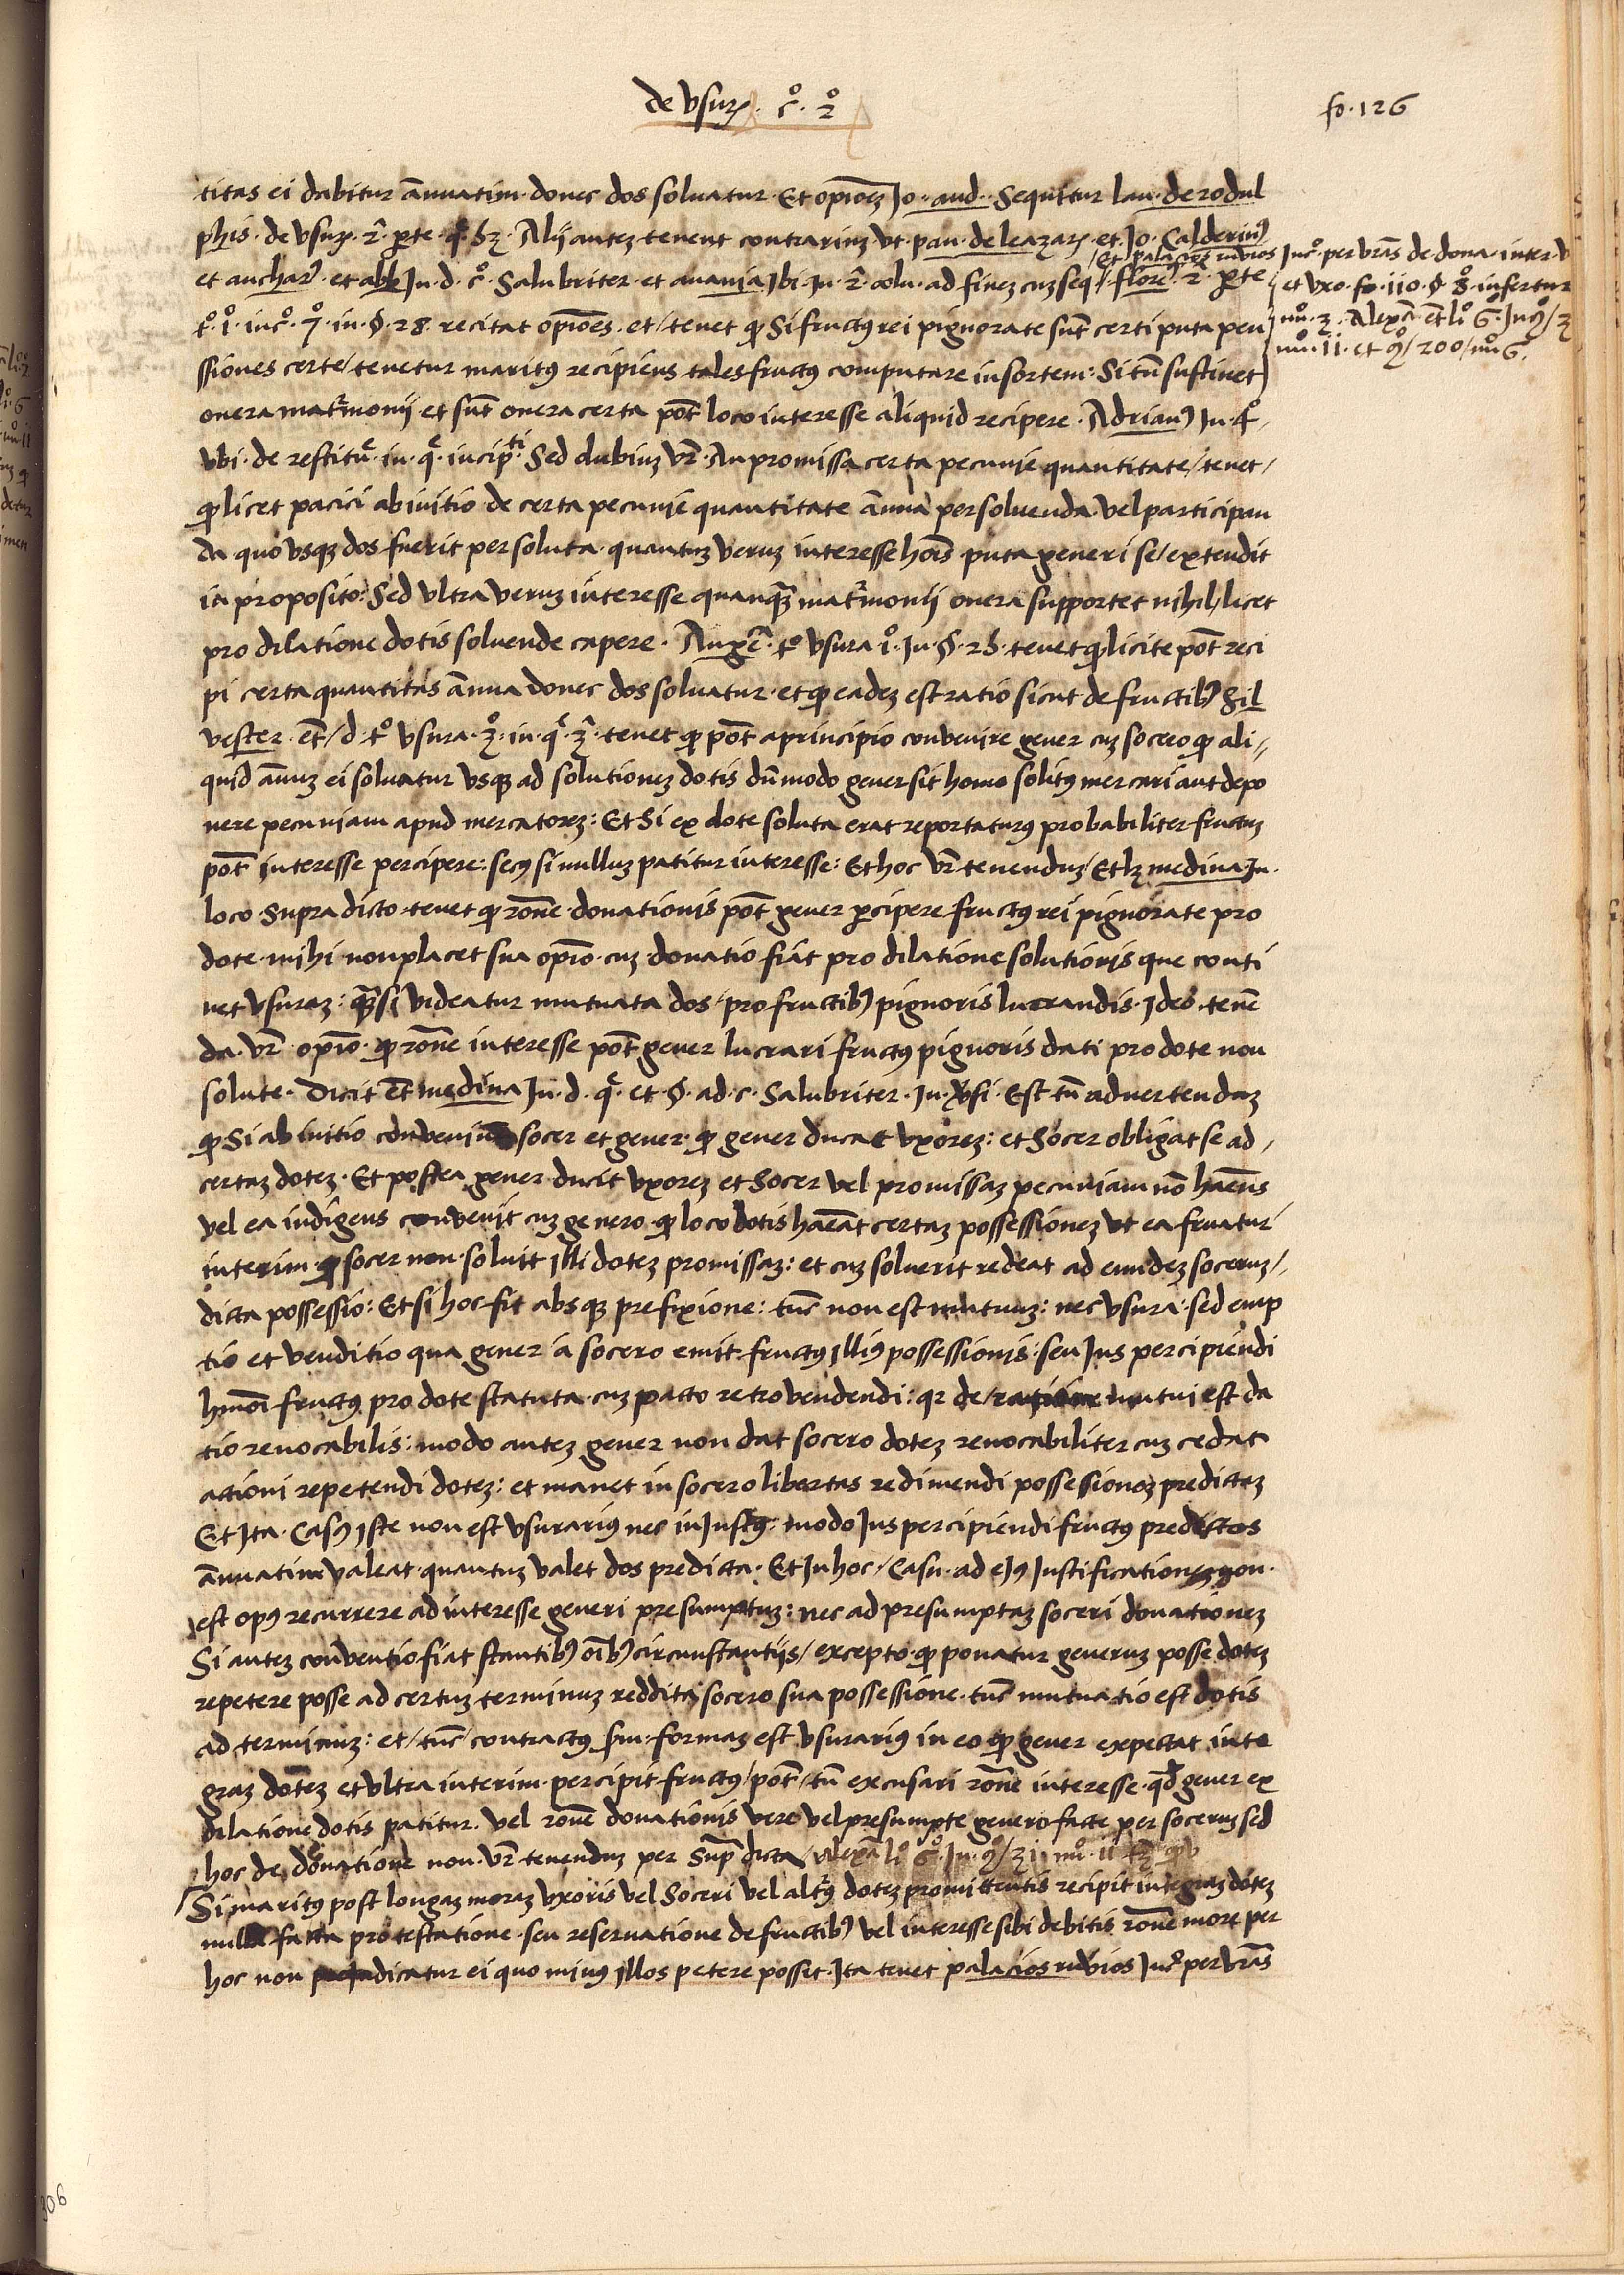 de vsur. c.º 2.º
fo. 126
titas ei dabitur ānuatim donec dos soluatur. Et opiōez Jo. and. sequitur lau. de rodul
phis. de vsur. 2. ꝑte. q. 52. Alij autez tenent contrariuz vt pau. de leazar. et Jo. Calderin9
et anchar. et abb Jn. d. c.º Salubriter. et anania Jbi. in. 2. colu. ad finez cuz seq. / et palacios ruvios flore. 2. ꝑte
t.º 1.º in c.º 7.º in. §. 28. recitat opiōes. et / tenet ꝙ si fruct9 rei pignorate sūt certi puta pen
ssiones certe / tenetur marit9 recipiens tales fruct9 computare in sortem: Si tn̄ sustinet
onera mat̄rmonij et sūt onera certa pōt loco interesse aliquid recipere. Adrian9 Jn. 4.º
vbi. de restitu. in. q. incip.ti Sed dubiuz vr̄. An promissa certa pecunie quantitate / tenet /
ꝙ licet pacici ab initio de certa pecunie quantitate ānua persoluenda vel participan
da quo vsqꝫ dos fuerit persoluta quantuz veruz interesse hōis puta generi se / extendit
in proposito: Sed vltra veruz interesse quanqꝫ mat̄rmonij onera supportet nihil / licet
pro dilatione dotis soluende capere. Angē. t.º vsura 1.º Jn. §. 25. tenet ꝙ licite pōt reci
pi certa quantitas ānua donec dos soluatur. et ꝙ eadez est ratio sicut de fructib9 Sil
vester. ēt / d. t.º vsura. 3.º in. q. 3. tenet ꝙ pōt a principio convenire gener cuz socero ꝙ ali //
quid ānuz ei soluatur vsqꝫ ad solutionez dotis dūmodo gener sit homo solit9 mercari aut depo
nere pecuniam apud mercatorez: Et si ex dote soluta erat reportatur9 probabiliter fructuz
pōt interesse percipere: sec9 si nulluz patitur interesse: Et hoc vr̄ tenenduz / Et lꝫ medina Jn.
loco supra dicto tenet ꝙ rōne donationis pōt gener ꝑcipere fruct9 rei pignorate pro
dote mihi non placet sua opīo. cuz donatio fiat pro dilatione solutionis que conti
net vsuraz: quasi videatur mutuata dos / pro fructib9 pignoris lucrandis. Jdeo tenē
da vr̄ opīo. ꝙ rōne interesse pōt gener lucrari fruct9 pignoris dati pro dote non
solute. Dicit ēt medina Jn. d. q. et §. ad. c. Salubriter. Jn. vsi. Est tn̄ advertenduz
ꝙ Si ab initio conveniunt socer et gener ꝙ gener ducat vxorez: et socer obligat se ad /
certaz dotez. Et postea gener ducit vxorez et socer vel promissaz pecuniam nō haēns
vel ea indigens convenit cuz genero ꝙ loco dotis haēat certaz possessionez vt ea fruatur /
interim ꝙ socer non soluit illi dotez promissaz: et cuz soluerit redeat ad eundez soceruz /
dicta possessio: Et si hoc fit absqꝫ prefixione: tūc non est mutuuz: nec vsura. sed emp
tio et venditio qua gener a socero emit fruct9 Jlli9 possessionis. seu Jus percipiendi
hmōi fruct9 pro dote statuta cuz pacto retrovendendi: qr de / ratione mutui est da
tio reuocabilis: modo autez gener non dat socero dotez reuocabiliter cuz cedat
actioni repetendi dotez: et manet in socero libertas redimendi possessionez predictaz
Et Jta. Cas9 Jste non est vsurarius nec inJust9: modo Jus percipiendi fruct9 predictos
ānuatim valeat quantuz valet dos predicta. Et Jn hoc / Casu. ad ej9 Justificationez non.
est op9 recurrere ad interesse generi presumptuz: nec ad presumptaz soceri donationez
Si autez conventio fiat stantib9 oīb9 circunstantijs / excepto ꝙ ponatur generuz posse dotez
repetere posse ad certuz terminuz reddita socero sua possessione. tūc mutuatio est dotis
ad terminuz: et / tūc / contract9 sm̄ formaz est vsurarius in eo ꝙ gener expectat inte
graz dotez et vltra interim percipit fruct9 / pōt / tn̄ excusari rōne interesse qd gener ex
dilatione dotis patitur. vel rōne donationis vere vel presumpte genero facte per soceruz sed
hoc de donatione non vr̄ tenenduz per supra dicta / Alexā. li.º 6.º Jn. 9.º / 31. nu.º 11
Si marit9 post longaz moraz vxoris vel soceri vel alter9 dotez promittentis recipit integraz dotez
nulla facta protestatione seu reservatione de fructib9 vel interesse sibi debitis rōne more per
hoc non prejudicatur ei quo min9 Jllos petere possit. Jta tenet palacios ruvios Jn c.º per vrās
Jn c.º per vrās de dona. inter. v
et vxo. fo. 110. §. 8.º infertur
nu.º 3. Alexā. ēt li.º 6.º Jn 9.º / 3
nu.º 11. et 9.º / 200 / nu.º 6.
306